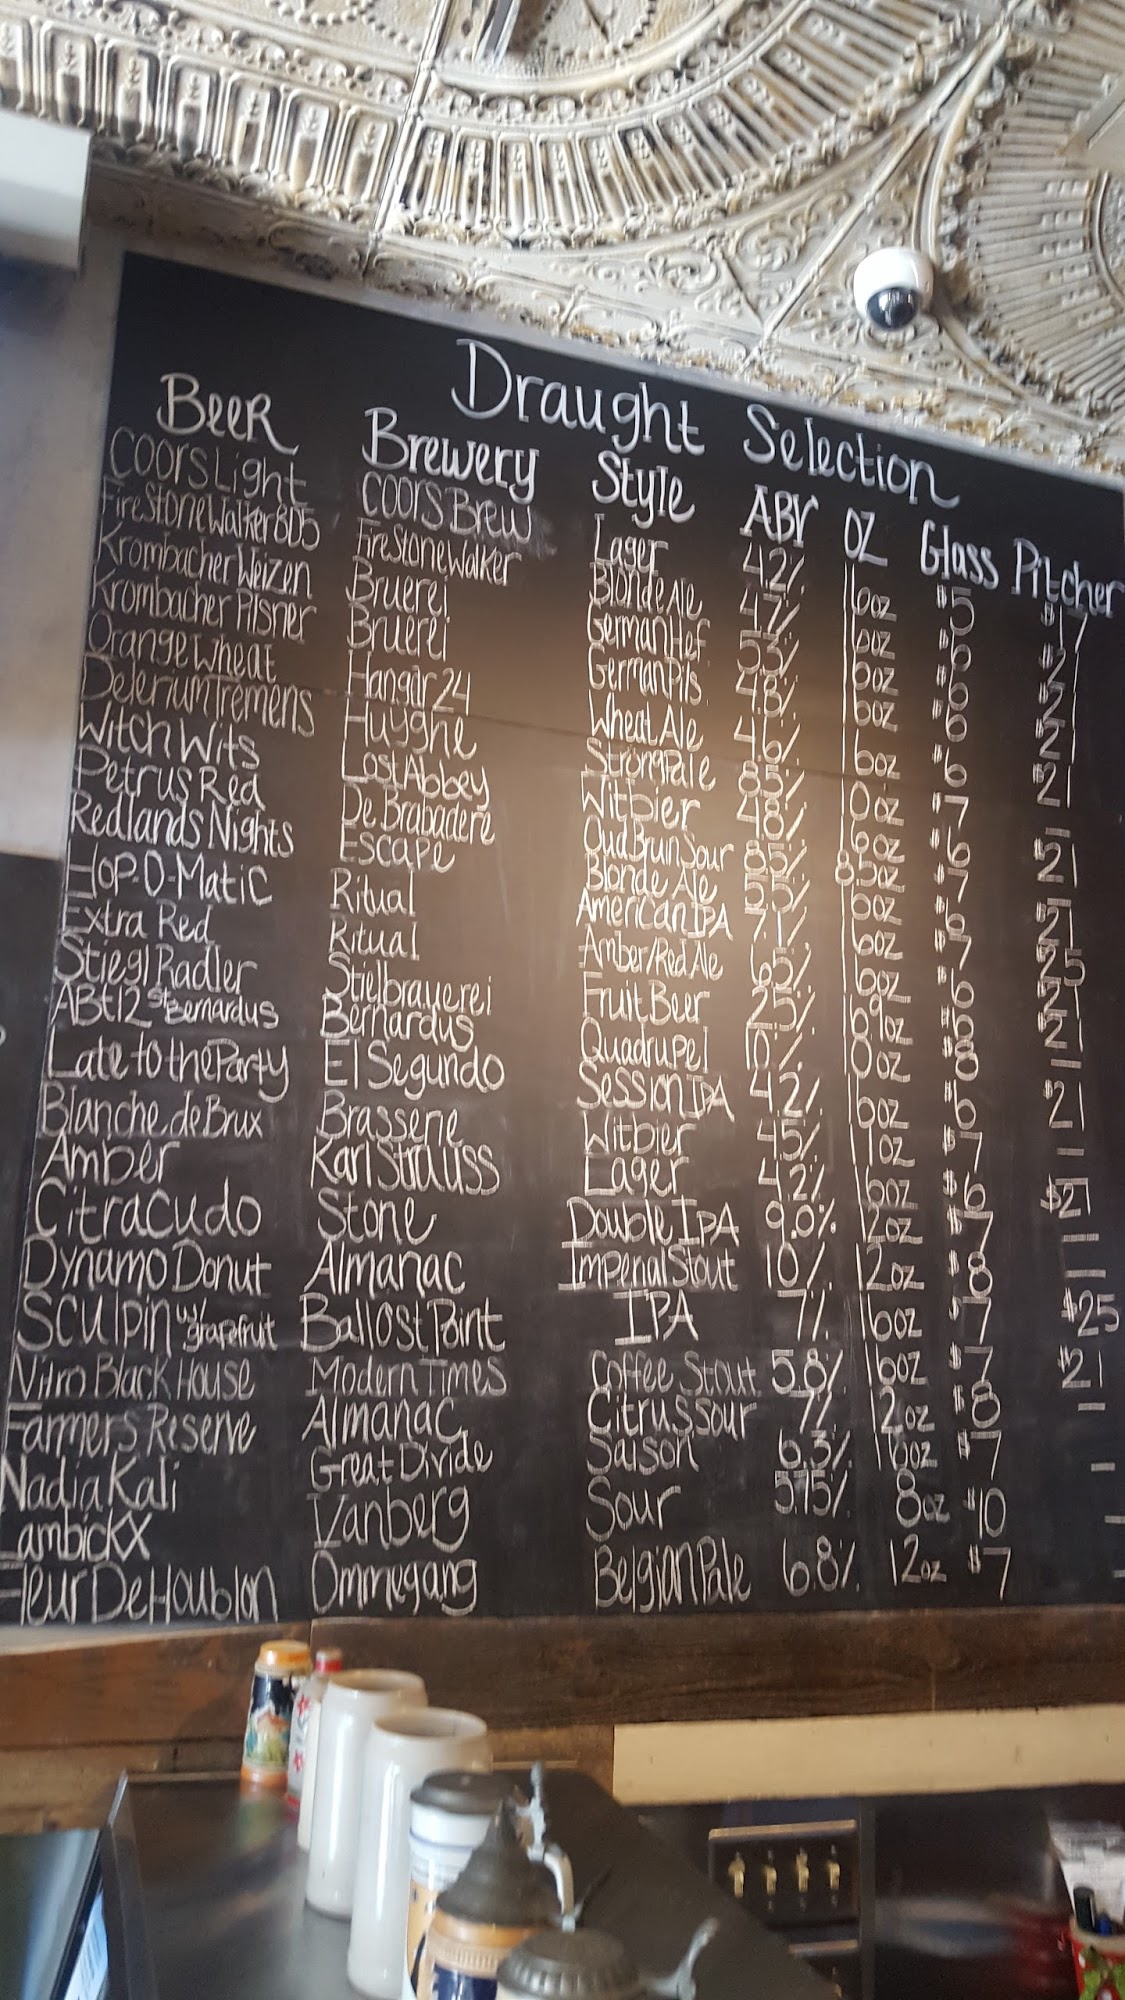 Draught Selection
Beer Brewery Style ABV OZ Glass Pitcher
Coors Light Coors Brew Lager 4.2% 16oz $5 $17
FireStoneWalker805 FireStoneWalker Blonde Ale 4.7% 16oz $6 $21
Krombacher Weizen Bruerei German Hef 5.3% 16oz $6 $21
Krombacher Pilsner Bruerei German Pils 4.8% 16oz $6 $21
Orange Wheat Hangar 24 Wheat Ale 4.6% 16oz $6 $21
Delerium Tremens Huyghe Strong Pale 8.5% 10oz $7 —
Witch Wits Lost Abbey Witbier 4.8% 16oz $6 $21
Petrus Red De Brabadere Oud Bruin Sour 8.5% 8.5oz $7 —
Redlands Nights Escape Blonde Ale 5.5% 16oz $6 $21
Hop-O-Matic Ritual American IPA 7.1% 16oz $7 $25
Extra Red Ritual Amber/Red Ale 6.5% 16oz $6 $21
Stiegl Radler Stielbrauerei Fruit Beer 2.5% 16.9oz $6 $21
ABt12 St Bernardus Bernardus Quadrupel 10% 10oz $8 —
Late to the Party El Segundo Session IPA 4.2% 16oz $6 $21
Blanche de Brux Brasserie Witbier 4.5% 17oz $7 —
Amber Karl Strauss Lager 4.2% 16oz $6 $21
Citracudo Stone Double IPA 9.0% 12oz $7 —
Dynamo Donut Almanac Imperial Stout 10% 12oz $8 —
Sculpin w/ grapefruit Ballast Point IPA 7% 16oz $7 $25
Nitro Black House Modern Times Coffee Stout 5.8% 16oz $7 $21
Farmers Reserve Almanac Citrus sour 7% 12oz $8 —
Nadia Kali Great Divide Saison 6.3% 16oz $7 —
Lambickx Vanberg Sour 5.75% 8oz $10 —
Fleur De Houblon Ommegang Belgian Pale 6.8% 12oz $7 —